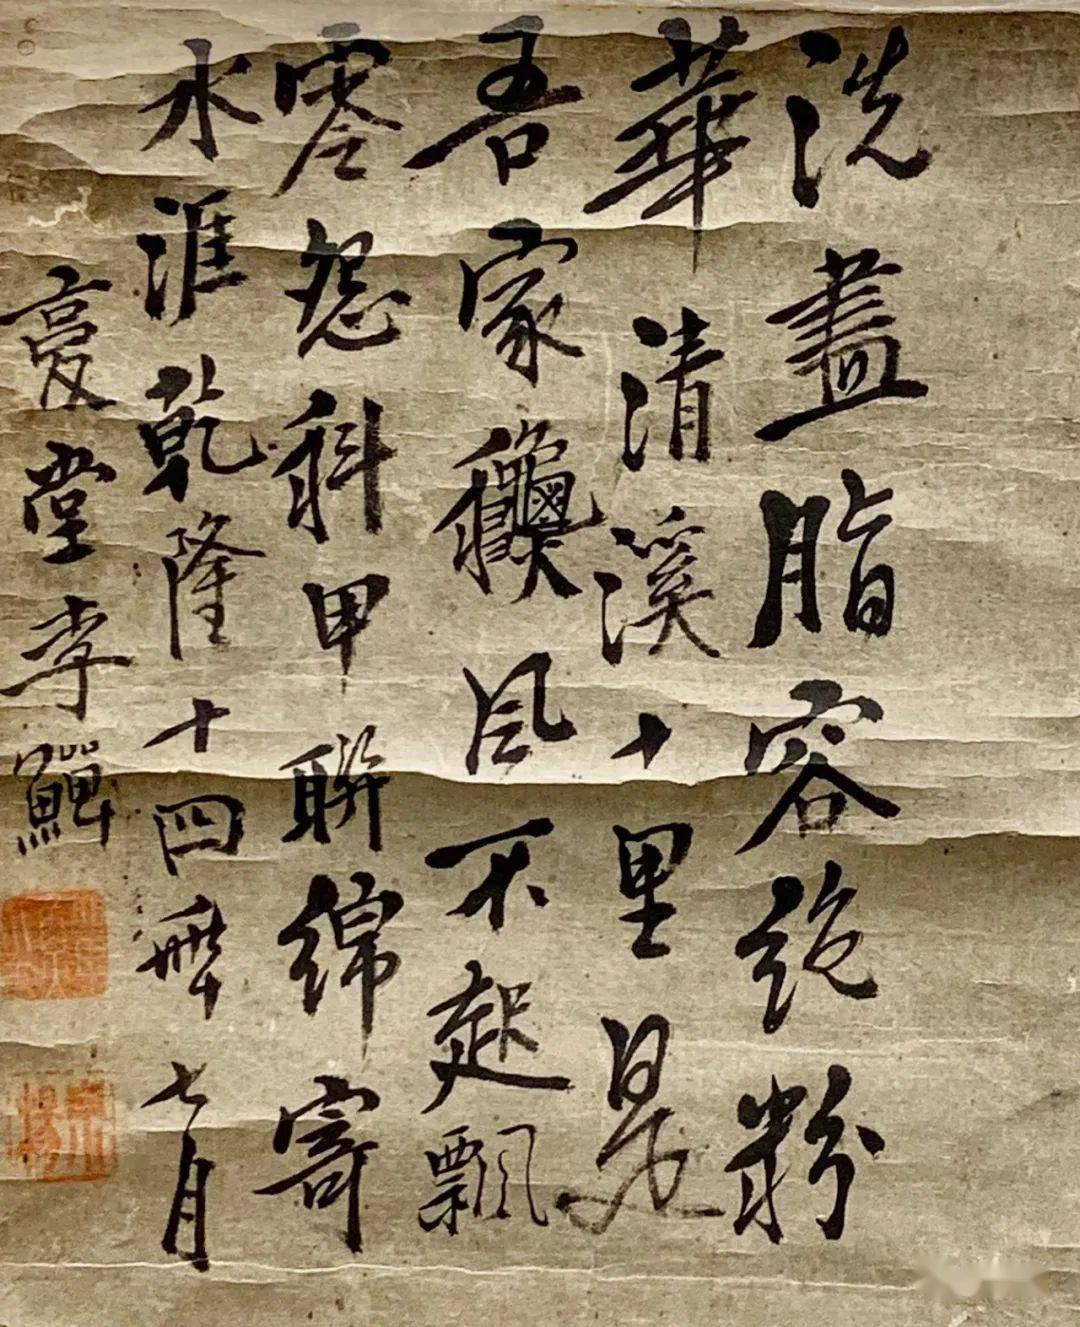 洗盡脂容絶粉
華清溪十里是
吾家龝風不起飄
零怨科甲聯綿寄
水涯乾隆十四年七月
復堂李鱓